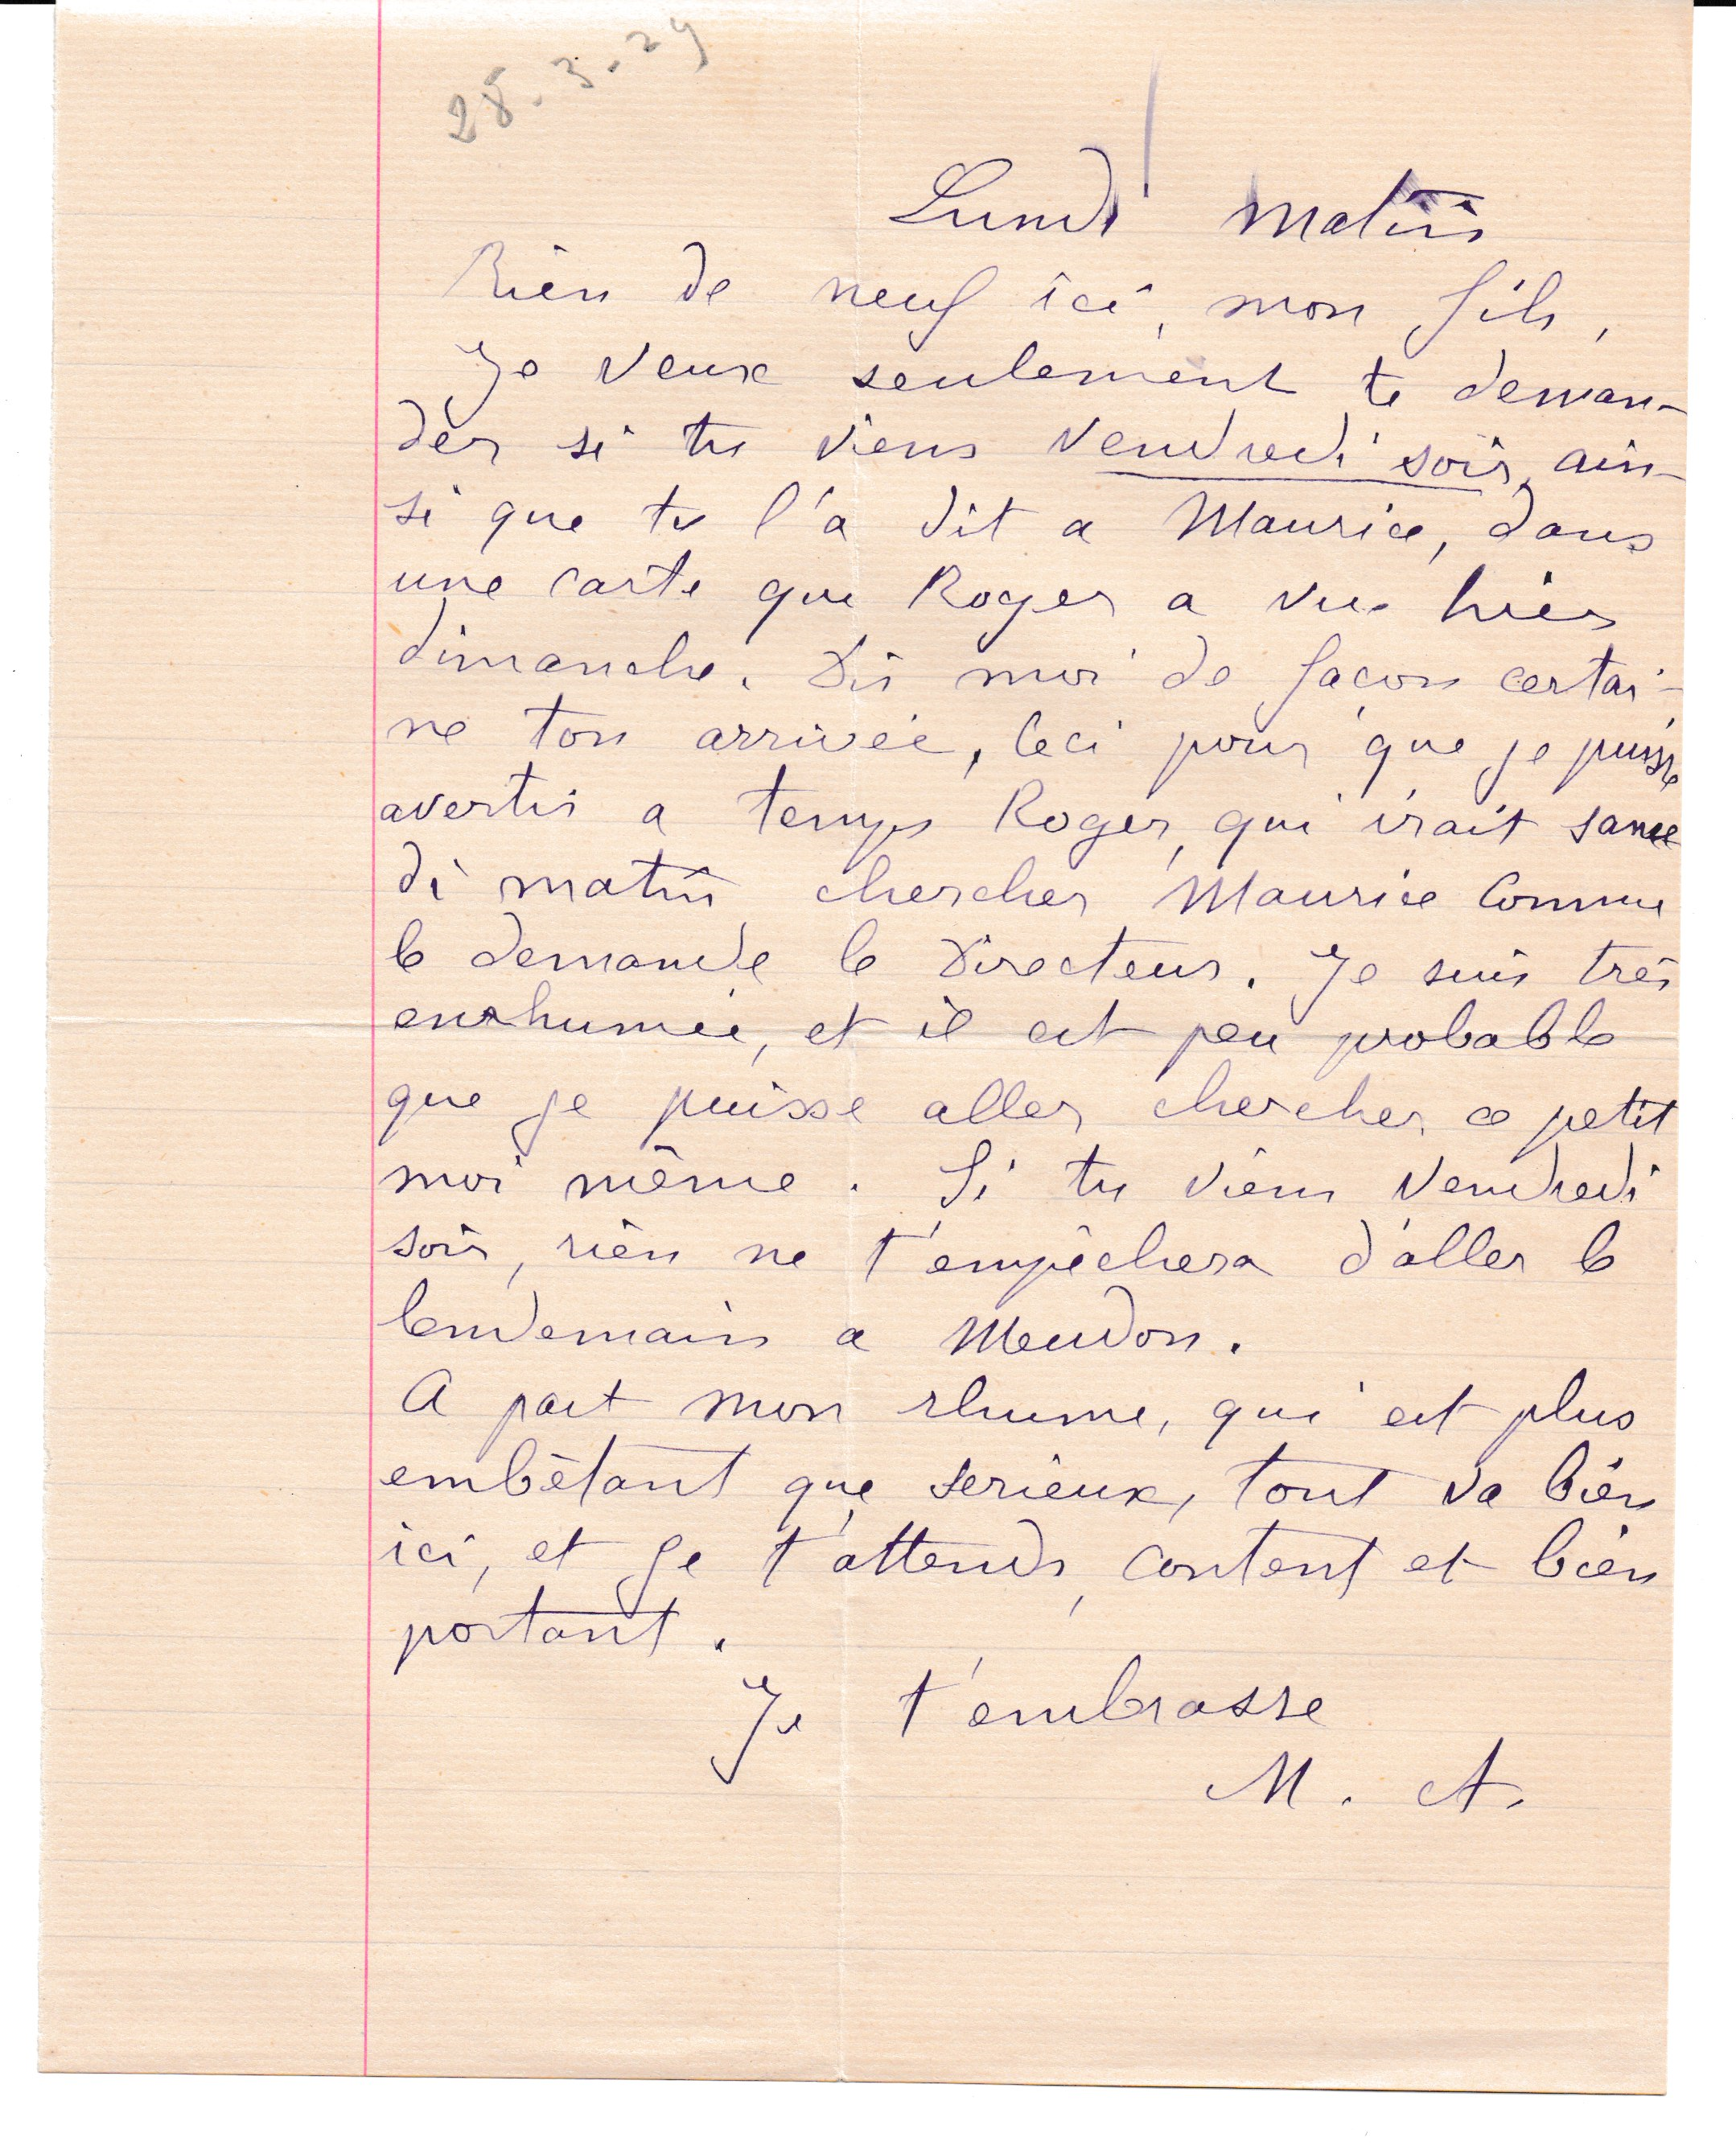 28.3.29
Lundi matin
Rien de neuf ici, mon fils,
Je veux seulement te deman-
der si tu viens vendredi soir, ain-
si que tu l'a dit a Maurice, dans
une carte que Roger a vue hier
dimanche. Dis moi de façon certai-
ne ton arrivée, ceci pour que je puisse
avertir a temps Roger, qui irait same
di matin chercher Maurice comme
le demande le Directeur. Je suis très
enrhumée, et il est peu probable
que je puisse aller chercher ce petit
moi même. Si tu viens vendredi
soir, rien ne t'empêchera d'aller le
lendemain a Meudon.
A part mon rhume, qui est plus
embêtant que serieux, tout va bien
ici, et je t'attends, content et bien
portant.
Je t'embrasse
M. A.